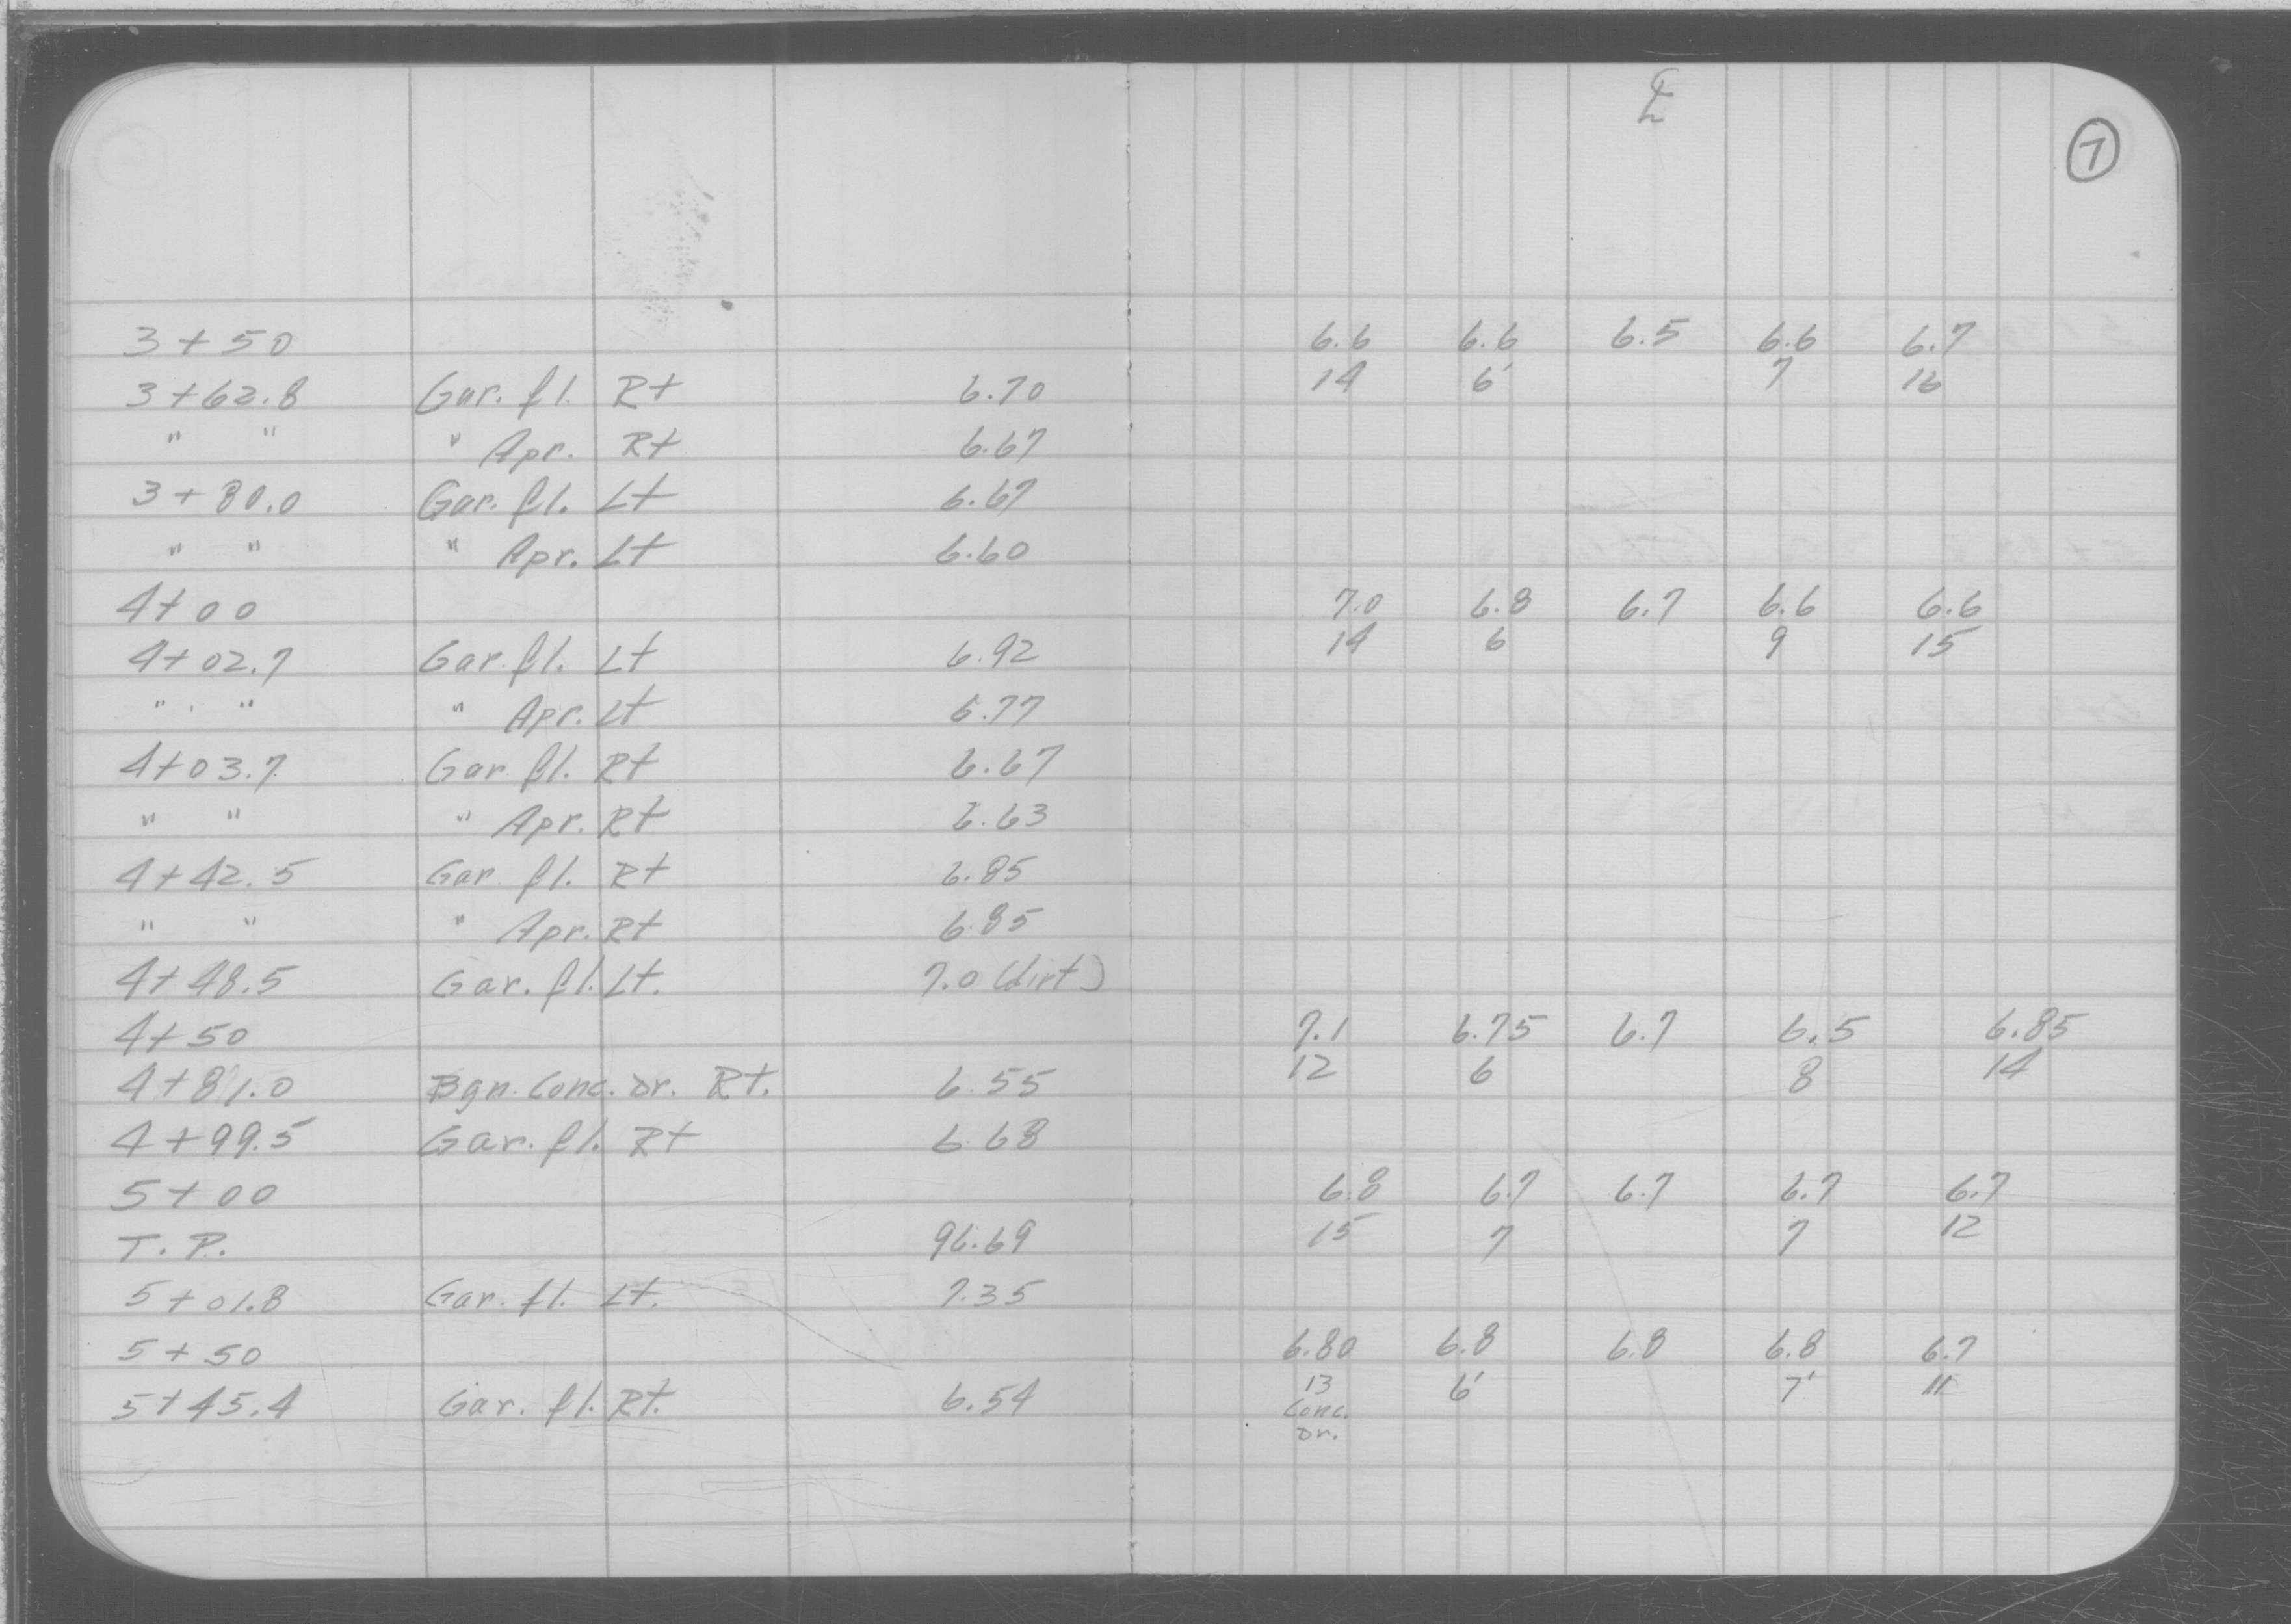 ℄
7
3+50 6.6 6.6 6.5 6.6 6.7
3+62.8 Gar. fl. Rt 6.70 14 6' 7 16
" " " Apr. Rt 6.67
3+80.0 Gar. fl. Lt 6.67
" " " Apr. Lt 6.60
4+00 7.0 6.8 6.7 6.6 6.6
4+02.7 Gar. fl. Lt 6.92 14 6 9 15
" " " Apr. Lt 6.77
4+03.7 Gar fl. Rt 6.67
" " " Apr. Rt 6.63
4+42.5 Gar fl. Rt 6.85
" " " Apr. Rt 6.85
4+48.5 Gar. fl. Lt. 7.0 (dirt)
4+50 7.1 6.75 6.7 6.5 6.85
4+81.0 Bgn. Conc. Dr. Rt. 6.55 12 6 8 14
4+99.5 Gar. fl. Rt 6.68
5+00 6.8 6.7 6.7 6.7 6.7
T.P. 96.69 15 7 7 12
5+01.8 Gar. fl. Lt. 7.35
5+50 6.80 6.8 6.8 6.8 6.7
5+45.4 Gar. fl. Rt. 6.54 13 6' 7' 11
Conc.
Dr.